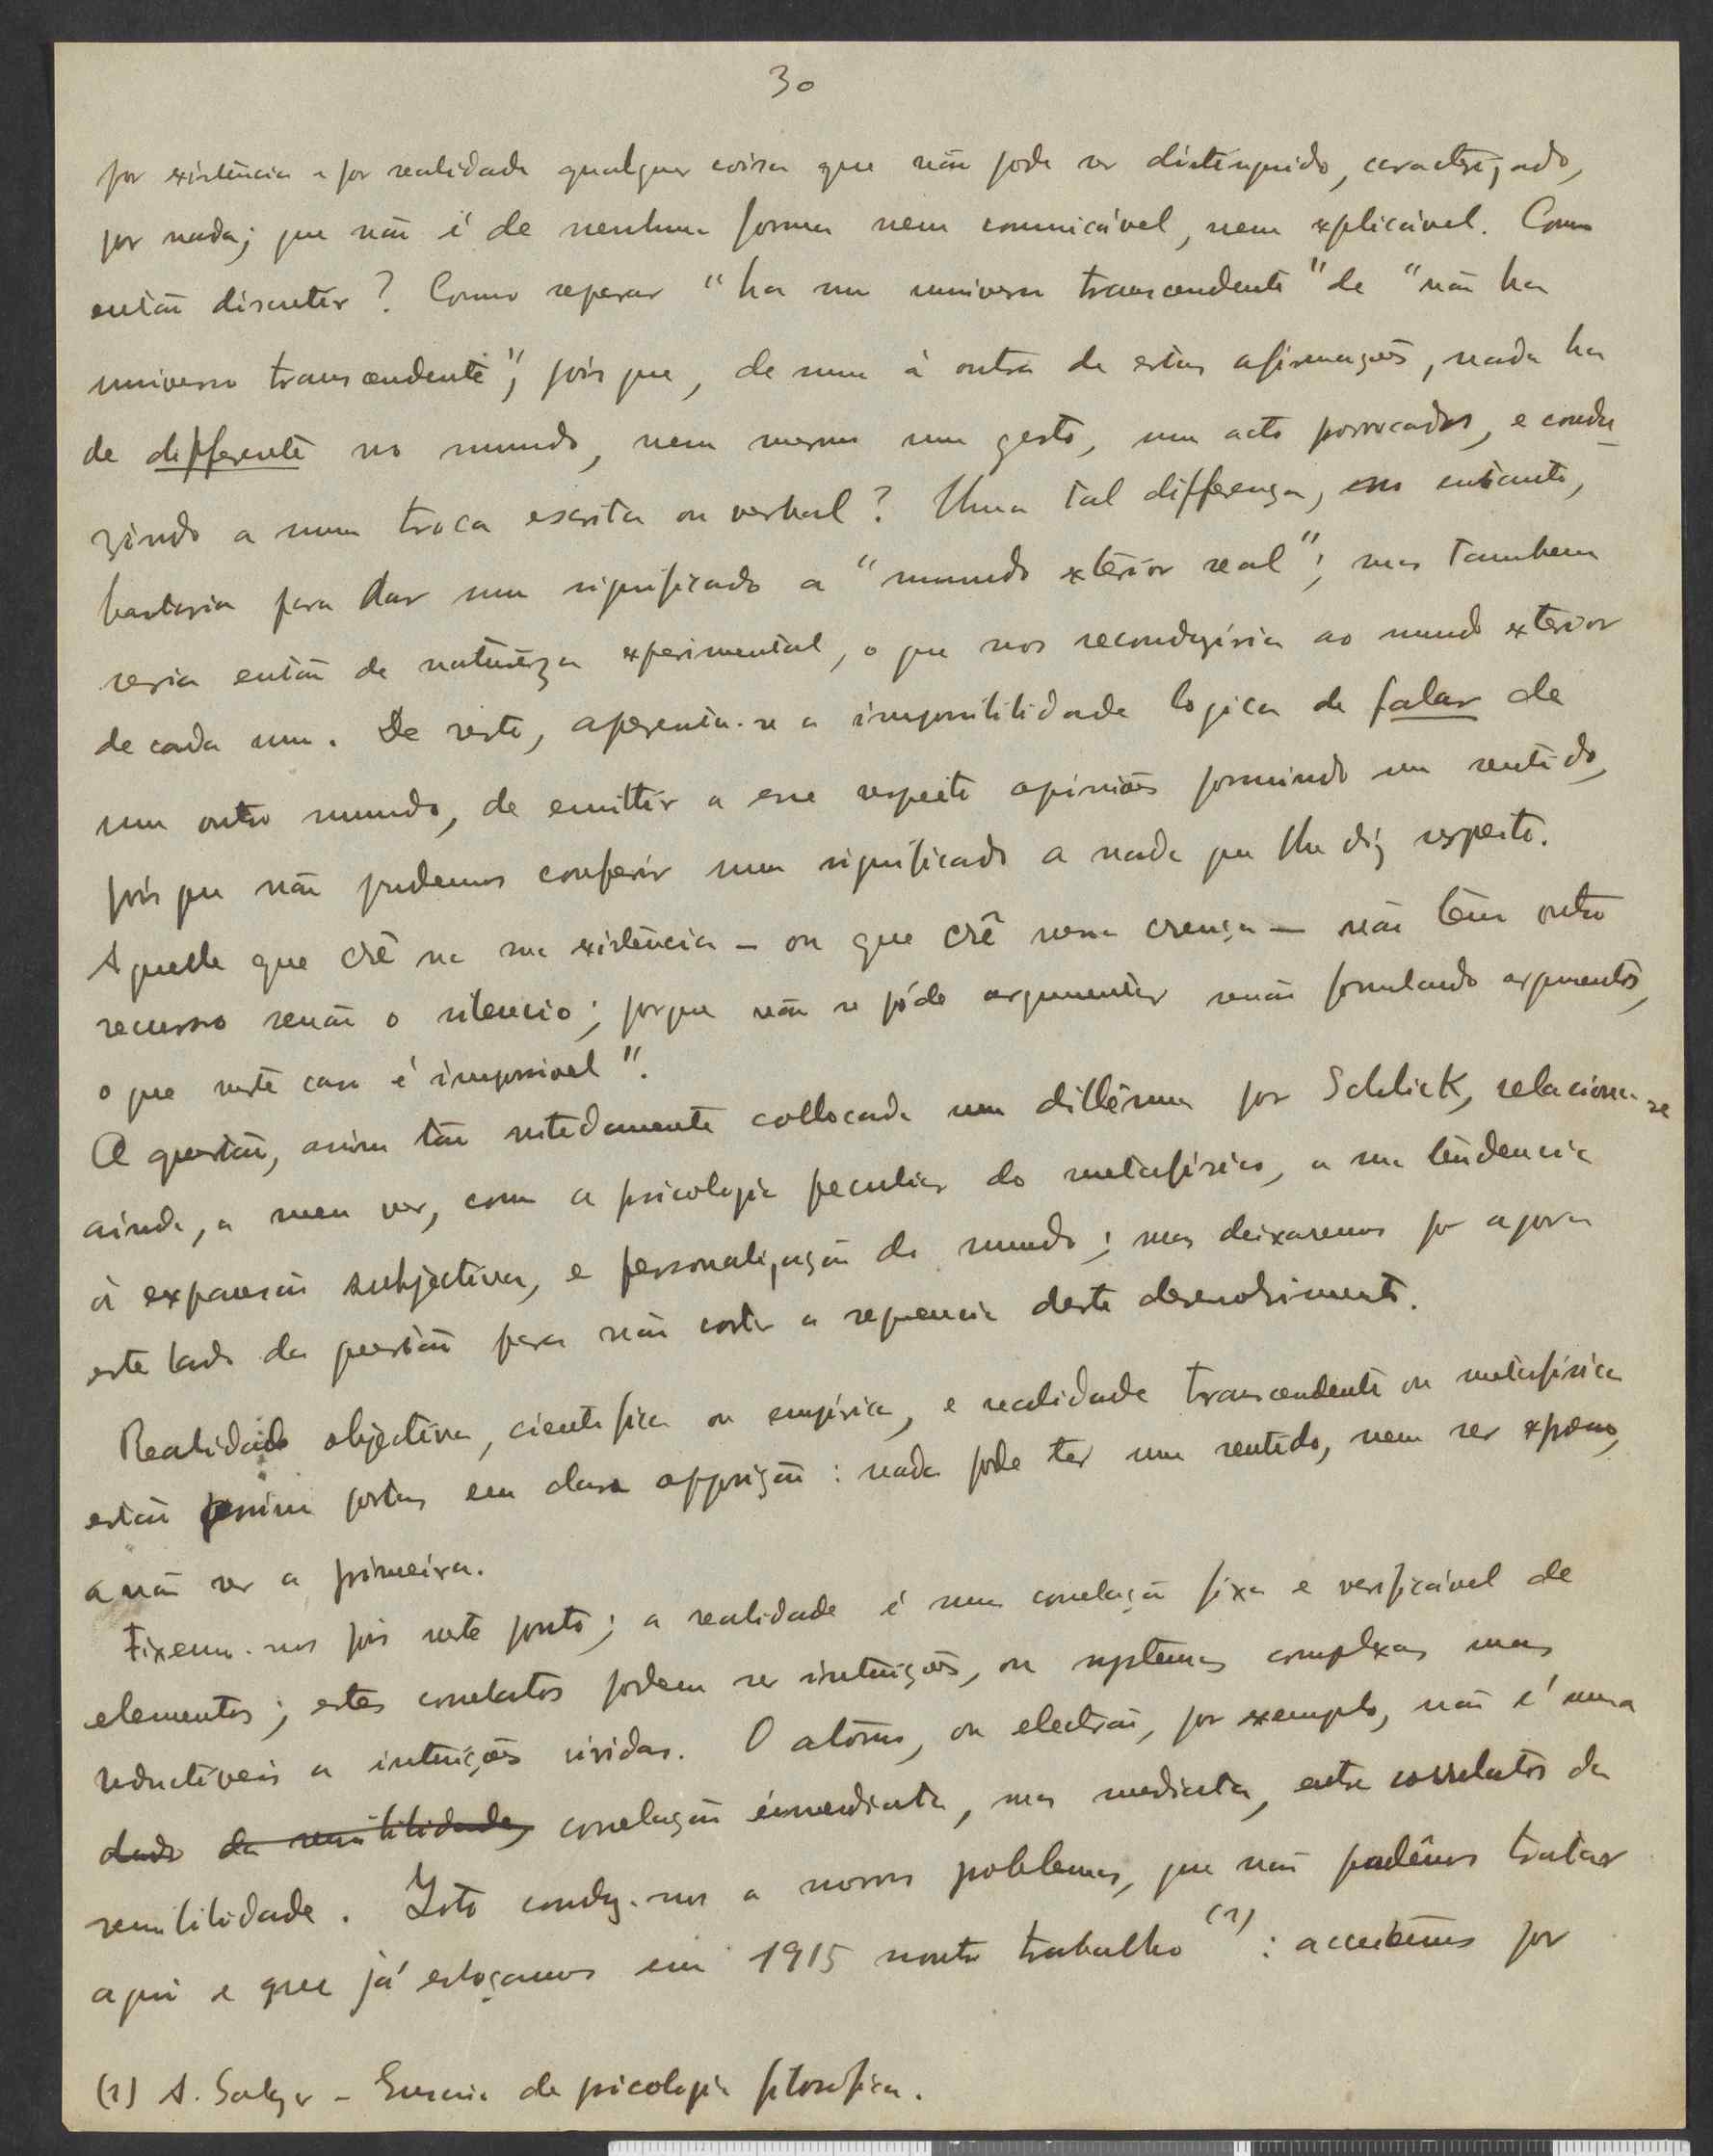 30
por existência e por realidade qualquer coisa que não pode ser distinguido, caracterizado,
por nada; que não é de nenhuma forma nem comunicável, nem explicável. Como
então discutir? Como separar "ha um universo transcendente" de "não ha
universo transcendente", pois que, de uma à outra de estas afirmações, nada ha
de differente no mundo, nem mesmo um gesto, um acto provocados, e condu-
zindo a uma troca escrita ou verbal? Uma tal differença, no entanto,
bastaria para dar um significado a "mundo exterior real"; mas tambem
seria então de natureza experimental, o que nos reconduziria ao mundo exterior
de cada um. De resto, apresenta-se a impossibilidade logica de falar de
um outro mundo, de emittir a esse respeito opiniões possuindo um sentido,
pois que não podemos conferir um significado a nada que lhe diz respeito.
Aquelle que crê na sua existência – ou que crê nessa crença – não têm outro
recurso senão o silencio; porque não se póde argumentar senão formulando argumentos,
o que neste caso é impossivel".
A questão, assim tão nitidamente collocada num dillêmma por Schlick, relaciona-se
ainda, a meu ver, com a psicologia peculiar do metafísico, a sua tendencia
à expansão subjectiva, e personalização do mundo; mas deixaremos por agora
este lado da questão para não cortar a sequencia deste desenvolvimento.
Realidade objectiva, cientifica ou empírica, e realidade transcendente ou metafísica
estão assim postas em clara opposição: nada pode ter um sentido, nem ser expresso,
a não ser a primeira.
Fixemo-nos pois neste ponto; a realidade é uma correlação fixa e verificável de
elementos; estes correlatos podem ser intuições, ou systemas complexos mas
reductíveis a intuições vividas. O atomo, ou electrão, por exemplo, não é uma
dado da sensibilidade, correlação immediata, mas mediata, entre correlatos da
sensibilidade. Isto conduz-nos a novos problemas, que não podêmos tratar
aqui e que já esboçamos em 1915 noutro trabalho (1): accentuêmos por
(1) A. Salazar – Ensaio de psicologia filosofica.